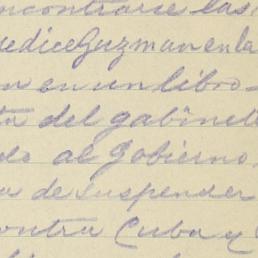 ncontrarse las
edice Guzman en la
n en un libro
ta del gabinet
do al Gobierno,
s de suspender
contra Cuba y